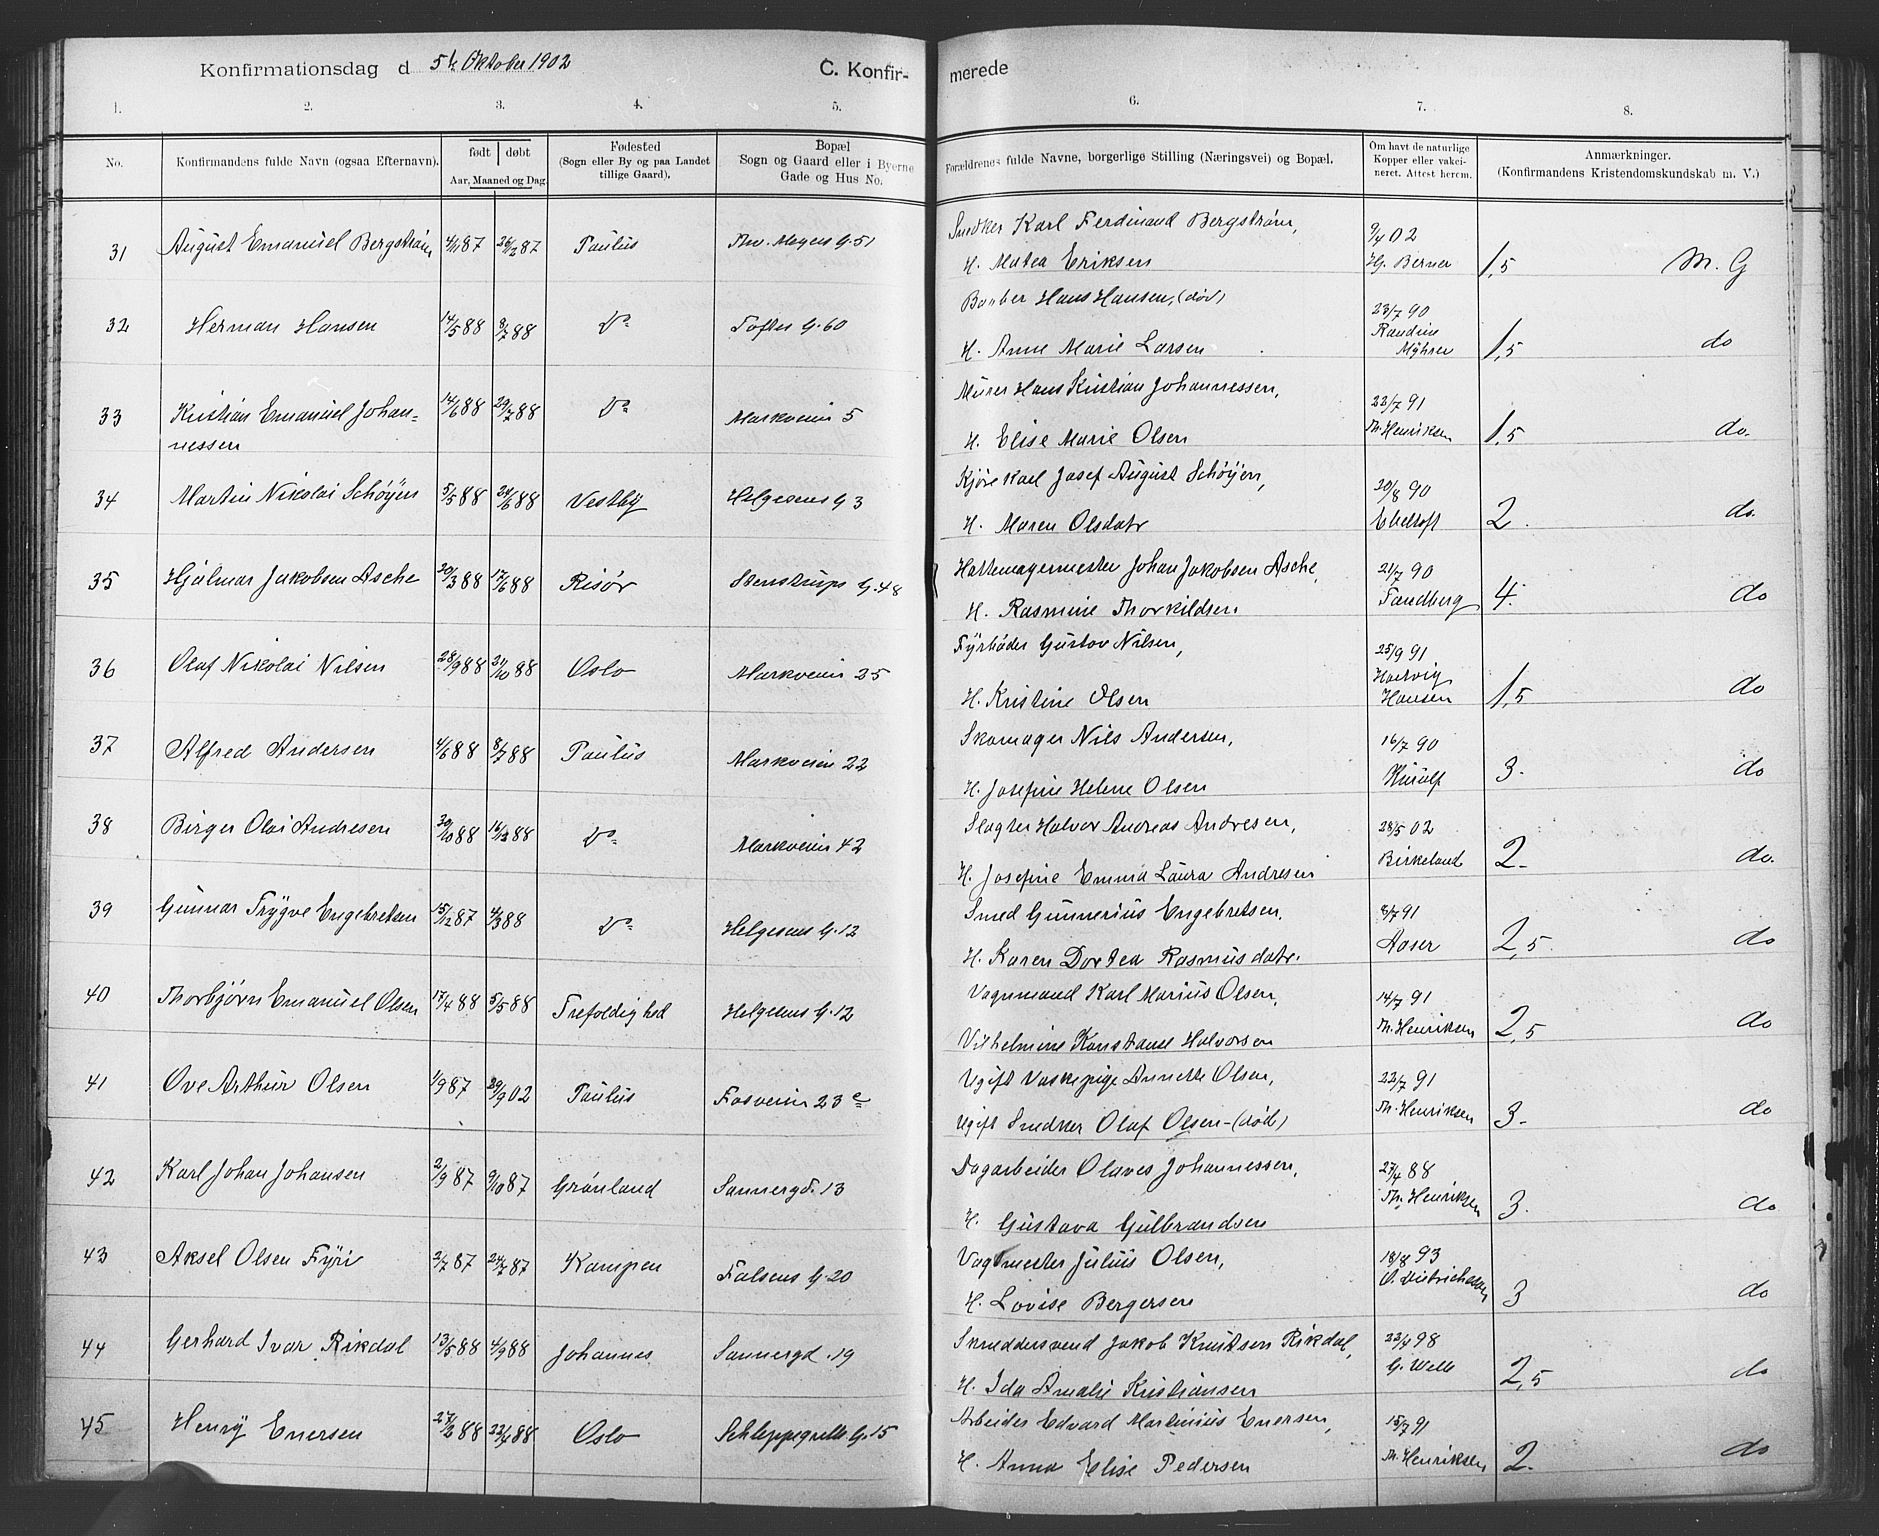 Konfirmationsdag d 5te Oktober 1902 C. Konfir- merede
1. 2. 3. 4. 5. 6. 7. 8.
No. Konfirmandens fulde Navn (ogsaa Efternavn). født døbt Aar, Maaned og Dag.
Fødested (Sogn eller By og paa Landet tillige Gaard).
Bopæl Sogn og Gaard eller i Byerne Gade og Hus No.
Forældrenes fulde Navne, borgerlige Stilling (Næringsvei) og Bopæl.
Om havt de naturlige Kopper eller vakcineret. Attest herom.
Anmærkninger. (Konfirmandens Kristendomskundskab m. V.)
31 August Emanuel Bergstrøm 4/11 87 26/12 87 Paulus Thv. Meyers G. 51 Snedker Karl Ferdinand Bergstrøm, 9/4 02
H. Matea Eriksen Hj. Berner 1,5 M. G
32 Herman Hansen 14/5 88 8/7 88 Do Toftes G. 60 Barber Hans Hansen, (død) 23/7 90
H. Anne Marie Larsen Randine Myhrer 1,5 do
33 Kristian Emanuel Johan- 14/6 88 29/7 88 Do Markveien 5 Murer Hans Kristian Johannessen, 22/7 91
nessen H. Elise Marie Olsen Th. Henriksen 1,5 do.
34 Martin Nikolai Schøyen 5/5 88 24/6 88 Vestby Helgesens G 3 Kjørekarl Josef August Schøyen, 20/8 90
H. Maren Olsdatr Ebeltoft 2. do.
35 Hjalmar Jakobsen Asche 20/3 88 17/6 88 Risør Stenstrups G. 48 Hattemagermester Johan Jakobsen Asche, 21/7 90
H. Rasmine Thorkildsen Tandberg 4. do
36 Olaf Nikolai Nilsen 28/9 88 21/10 88 Oslo Markveien 25 Fyrbøder Gustav Nilsen, 25/9 91
H. Kristine Olsen Hartvig Hansen 1,5 do
37 Alfred Andersen 4/6 88 8/7 88 Paulus Markveien 22 Skomager Nils Andersen, 16/7 90
H. Josefine Helene Olsen 3. do
38 Birger Olai Andresen 30/10 88 16/12 88 Do Markveien 42 Slagter Halvor Andreas Andresen, 28/5 02
H. Josefine Emma Laura Andresen Birkeland 2. do.
39 Gunnar Trygve Engebretsen 15/12 87 4/3 88 Do Helgesens G. 12 Smed Gunnerius Engebretsen. 8/7 91
H. Karen Dortea Rasmusdatr. Aaser 2,5. do
40 Thorbjørn Emanuel Olsen 17/4 88 5/5 88 Trefoldighed Helgesens G. 12 Vognmand Karl Marius Olsen, 14/7 91
Vilhelmine Konstanse Halvorsen Th. Henriksen 2,5 do
41 Ove Arthur Olsen 1/9 87 29/9 02 Paulus Fosveien 23 c Ugift Vaskepige Annette Olsen, 22/7 91
Ugift Snedker Olaf Olsen - (død) Th. Henriksen 3. do
42 Karl Johan Johansen 2/9 87 9/10 87 Grønland Sannergd. 13 Dagarbeider Olaves Johannessen, 27/4 88
H. Gustava Gulbrandsen Th. Henriksen 3. do
43 Aksel Olsen Fyri 2/7 87 24/7 87 Kampen Falsens G. 20 Vagtmester Julius Olsen, 18/8 93
H. Lovise Bergersen 3 do
44 Gerhard Ivar Rikdal 13/5 88 4/9 88 Johannes Sannergd. 19 Skræddersvend Jakob Knutsen Rikdal, 22/4 98
H. Ida Amalie Kristiansen G. Welle 2,5 do
45 Henry Enersen 27/2 88 22/4 88 Oslo Schleppegrells G. 15 Arbeider Edvard Martinius Enersen, 15/7 91
H. Anna Elise Pedersen Th. Henriksen 2. do